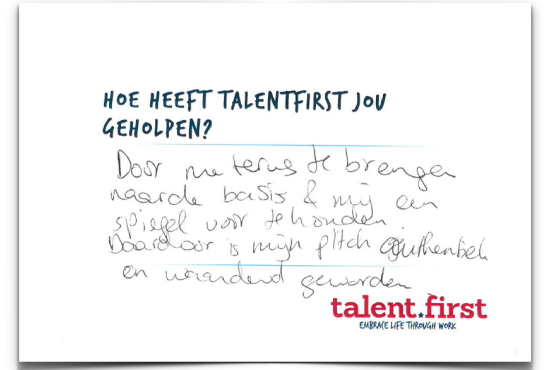 HOE HEEFT TALENTFIRST JOU
GEHOLPEN?
Door me terug te brengen
naar de basis & mij een
spiegel voor te houden.
Daardoor is mijn pitch authentiek
en geworden
talent.first
EMBRACE LIFE THROUGH WORK